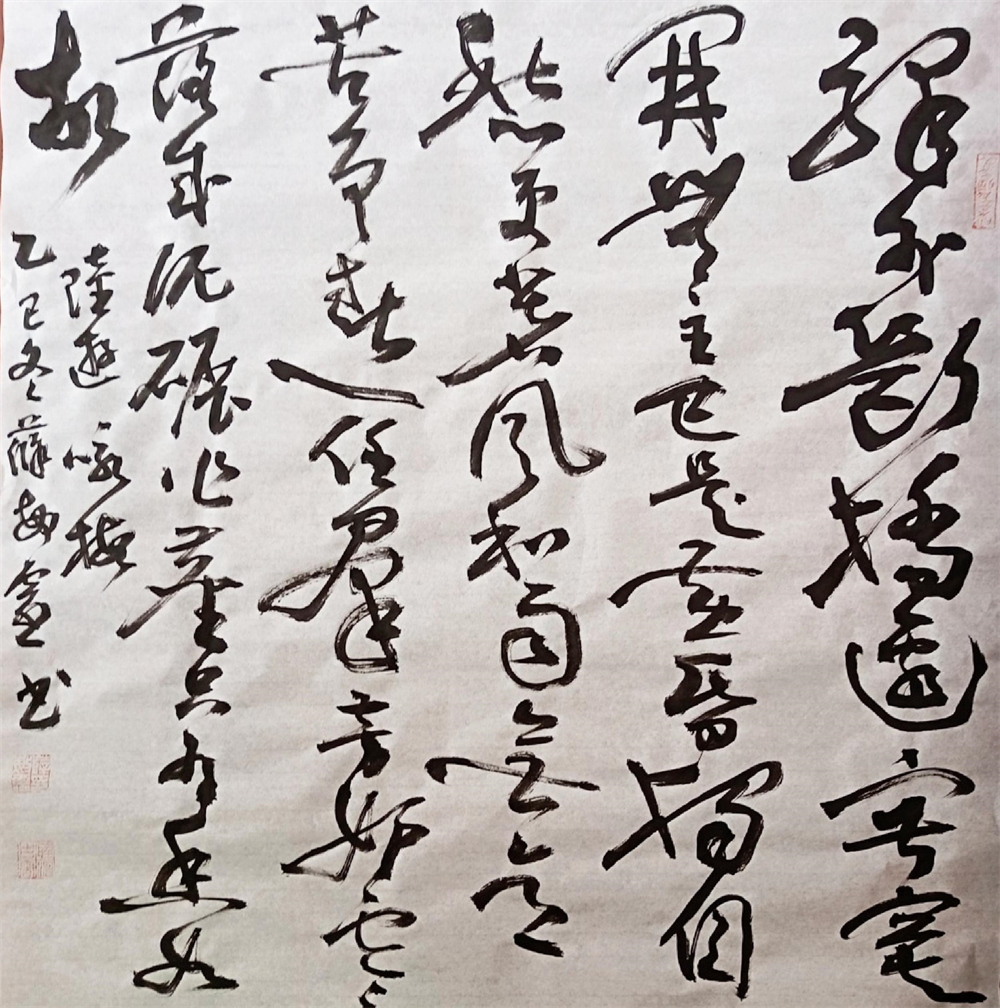 驛外斷橋邊寂寞
開無主已是黃昏獨自
愁更著風和雨無意
苦爭春一任羣芳妒零
落成泥碾作塵只有香如
故
陸遊咏梅
乙巳冬書